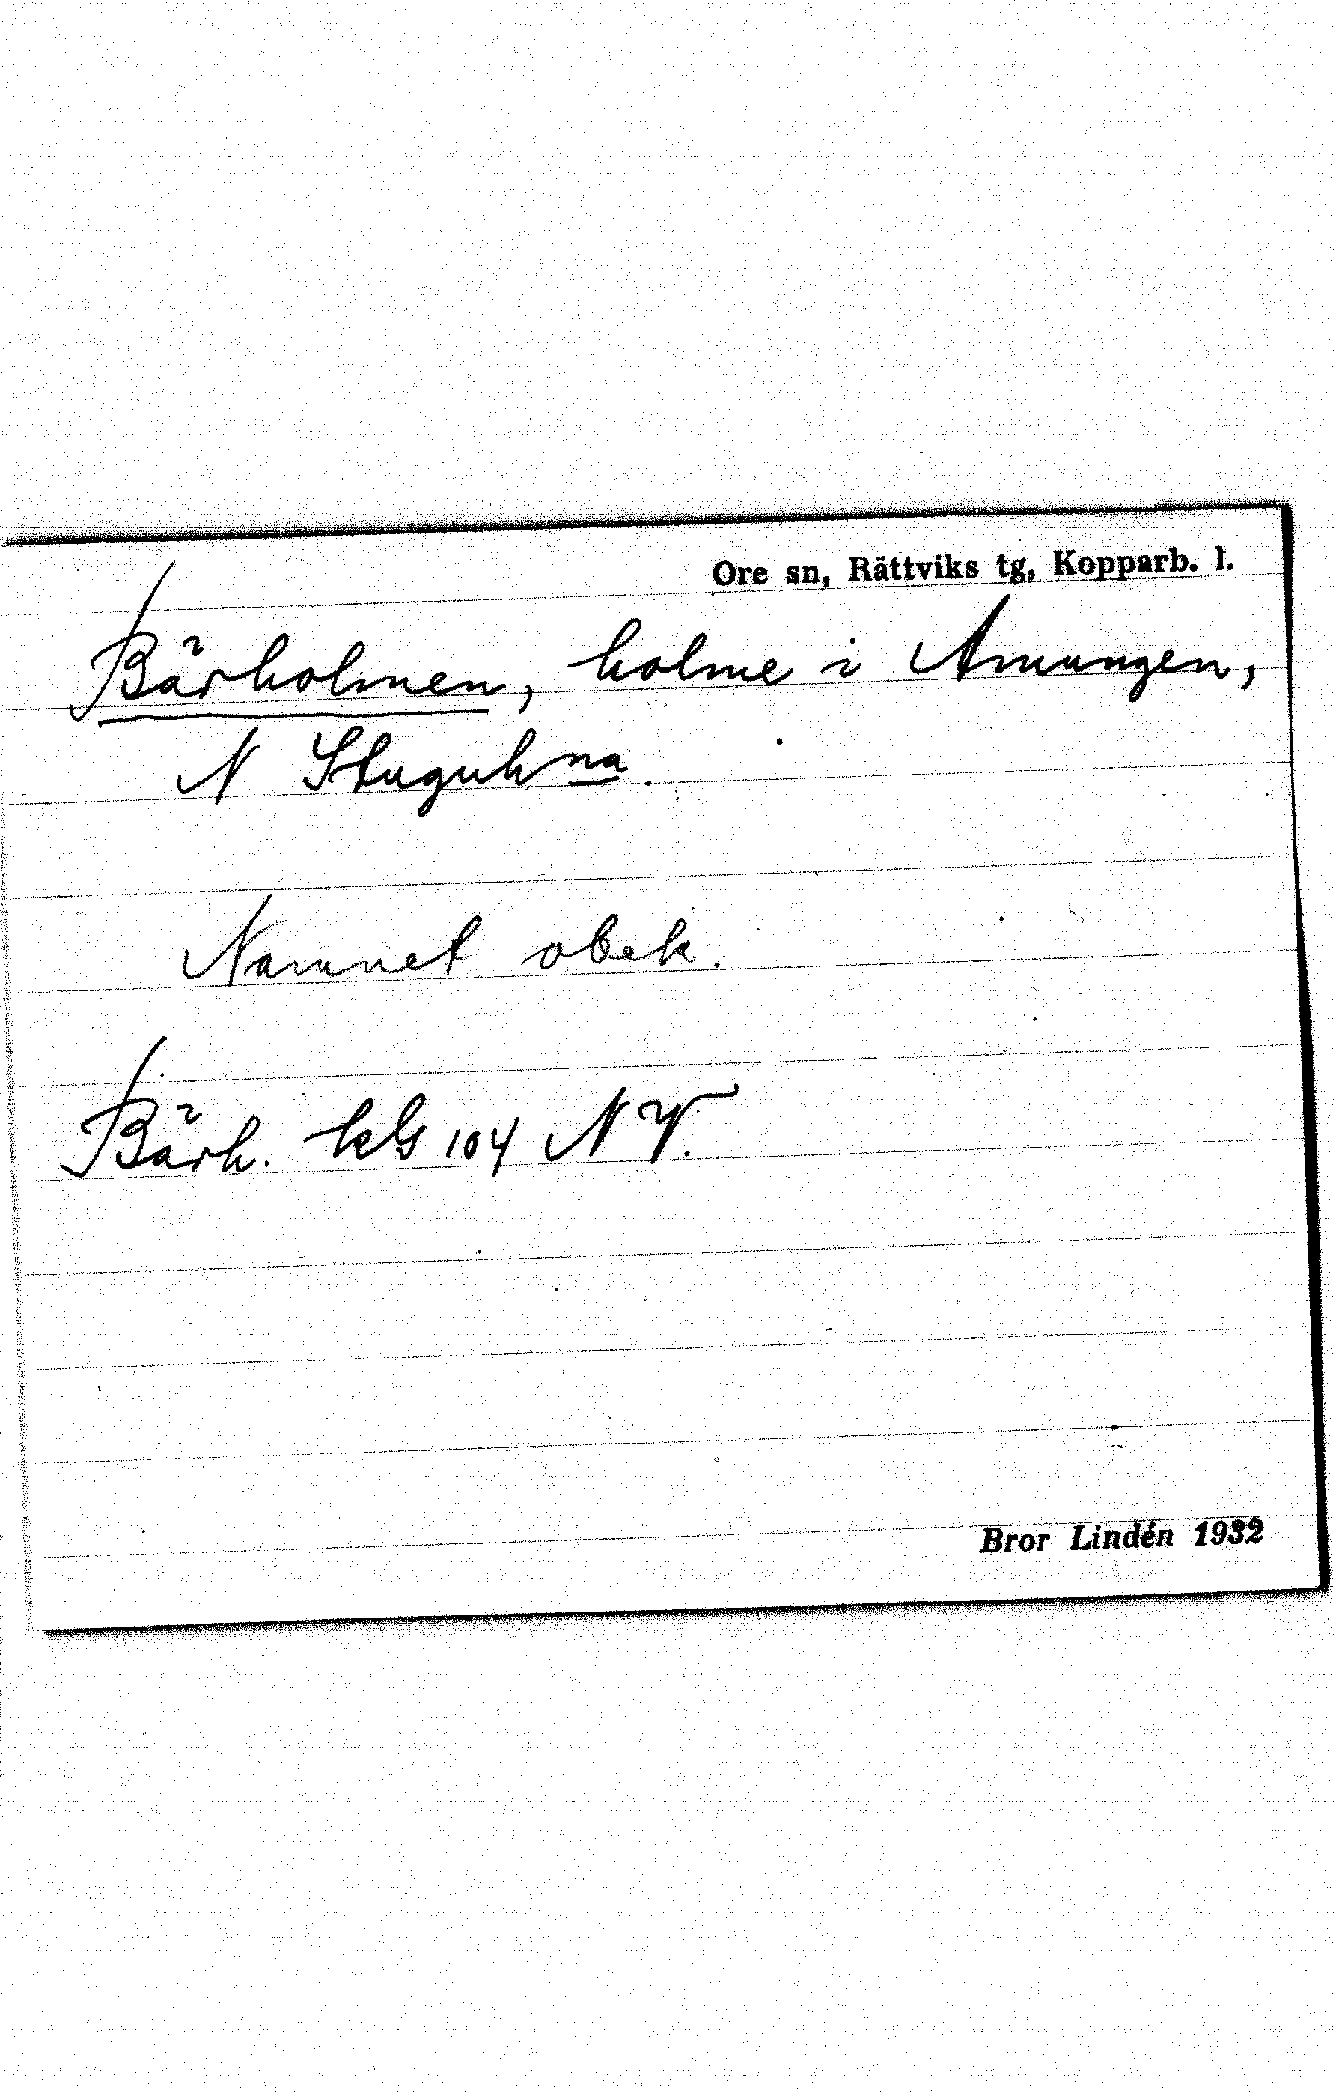 Ore sn, Rättviks tg, Kopparb. l.
Bärholmen, holme i Amungen,
N Stuguhna.
Namnet obek.
Bärh. kG 104 NV.
Bror Lindén 1932